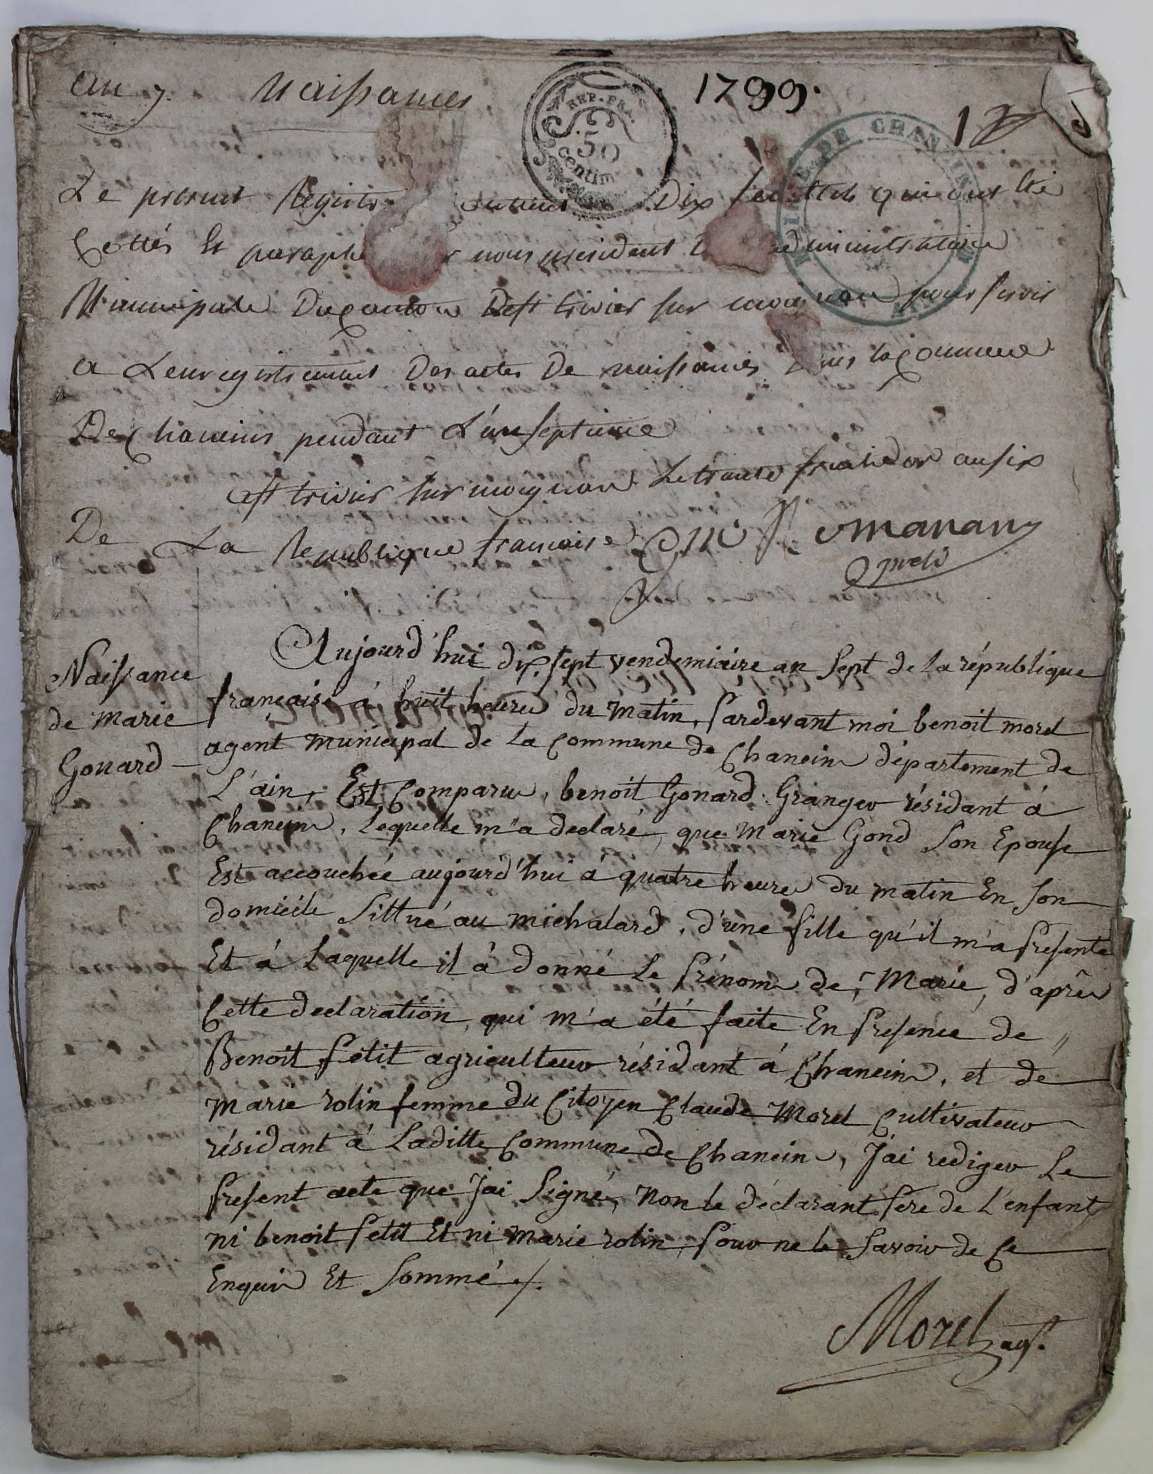 an 7. Naissances 1799.
REP. FRA.
50
centim.
MAIRIE DE CHAN
Le present Registre contenant Dix feuillets qui ont été
Cottés Et paraphé par nous president de administration
Municipale Du canton De st trivier sur moignan pour servir
a L'enregistrement Des actes De naissances dans la commune
De chaneins pendant L'an septieme
a st trivier sur moignan Le trente fructidor an six
De La Republique francaise
Naissance
de marie
Gonard
Aujourd'hui dix sept vendemiaire an sept de la république
française à huit heures du matin, pardevant moi benoit morel
agent municipal de la commune de Chanein département de
L'ain, Est Comparu, benoit Gonard Granger résidant à
Chanein, Lequelle m'a declaré, que marie Gond son Epouse
Est accouchée aujourd'hui à quatre heures du matin En son
domicile sittué au michalard, d'une fille qu'il m'a presenté
Et à laquelle il à donné le prénom de, Marie, d'après
Cette declaration, qui m'a été faite En presence de "
Benoit petit agriculteur résidant à Chanein, et de
marie rolin femme du Citoyen Claude Morel Cultivateur
résidant à Laditte Commune de Chanein, J'ai rediger Le
present acte que J'ai Signé, Non le déclarant père de L'enfant,
ni benoit petit Et ni marie rolin, pour ne le Savoir de Ce
Enquis Et Sommé ./.
Morel agt.